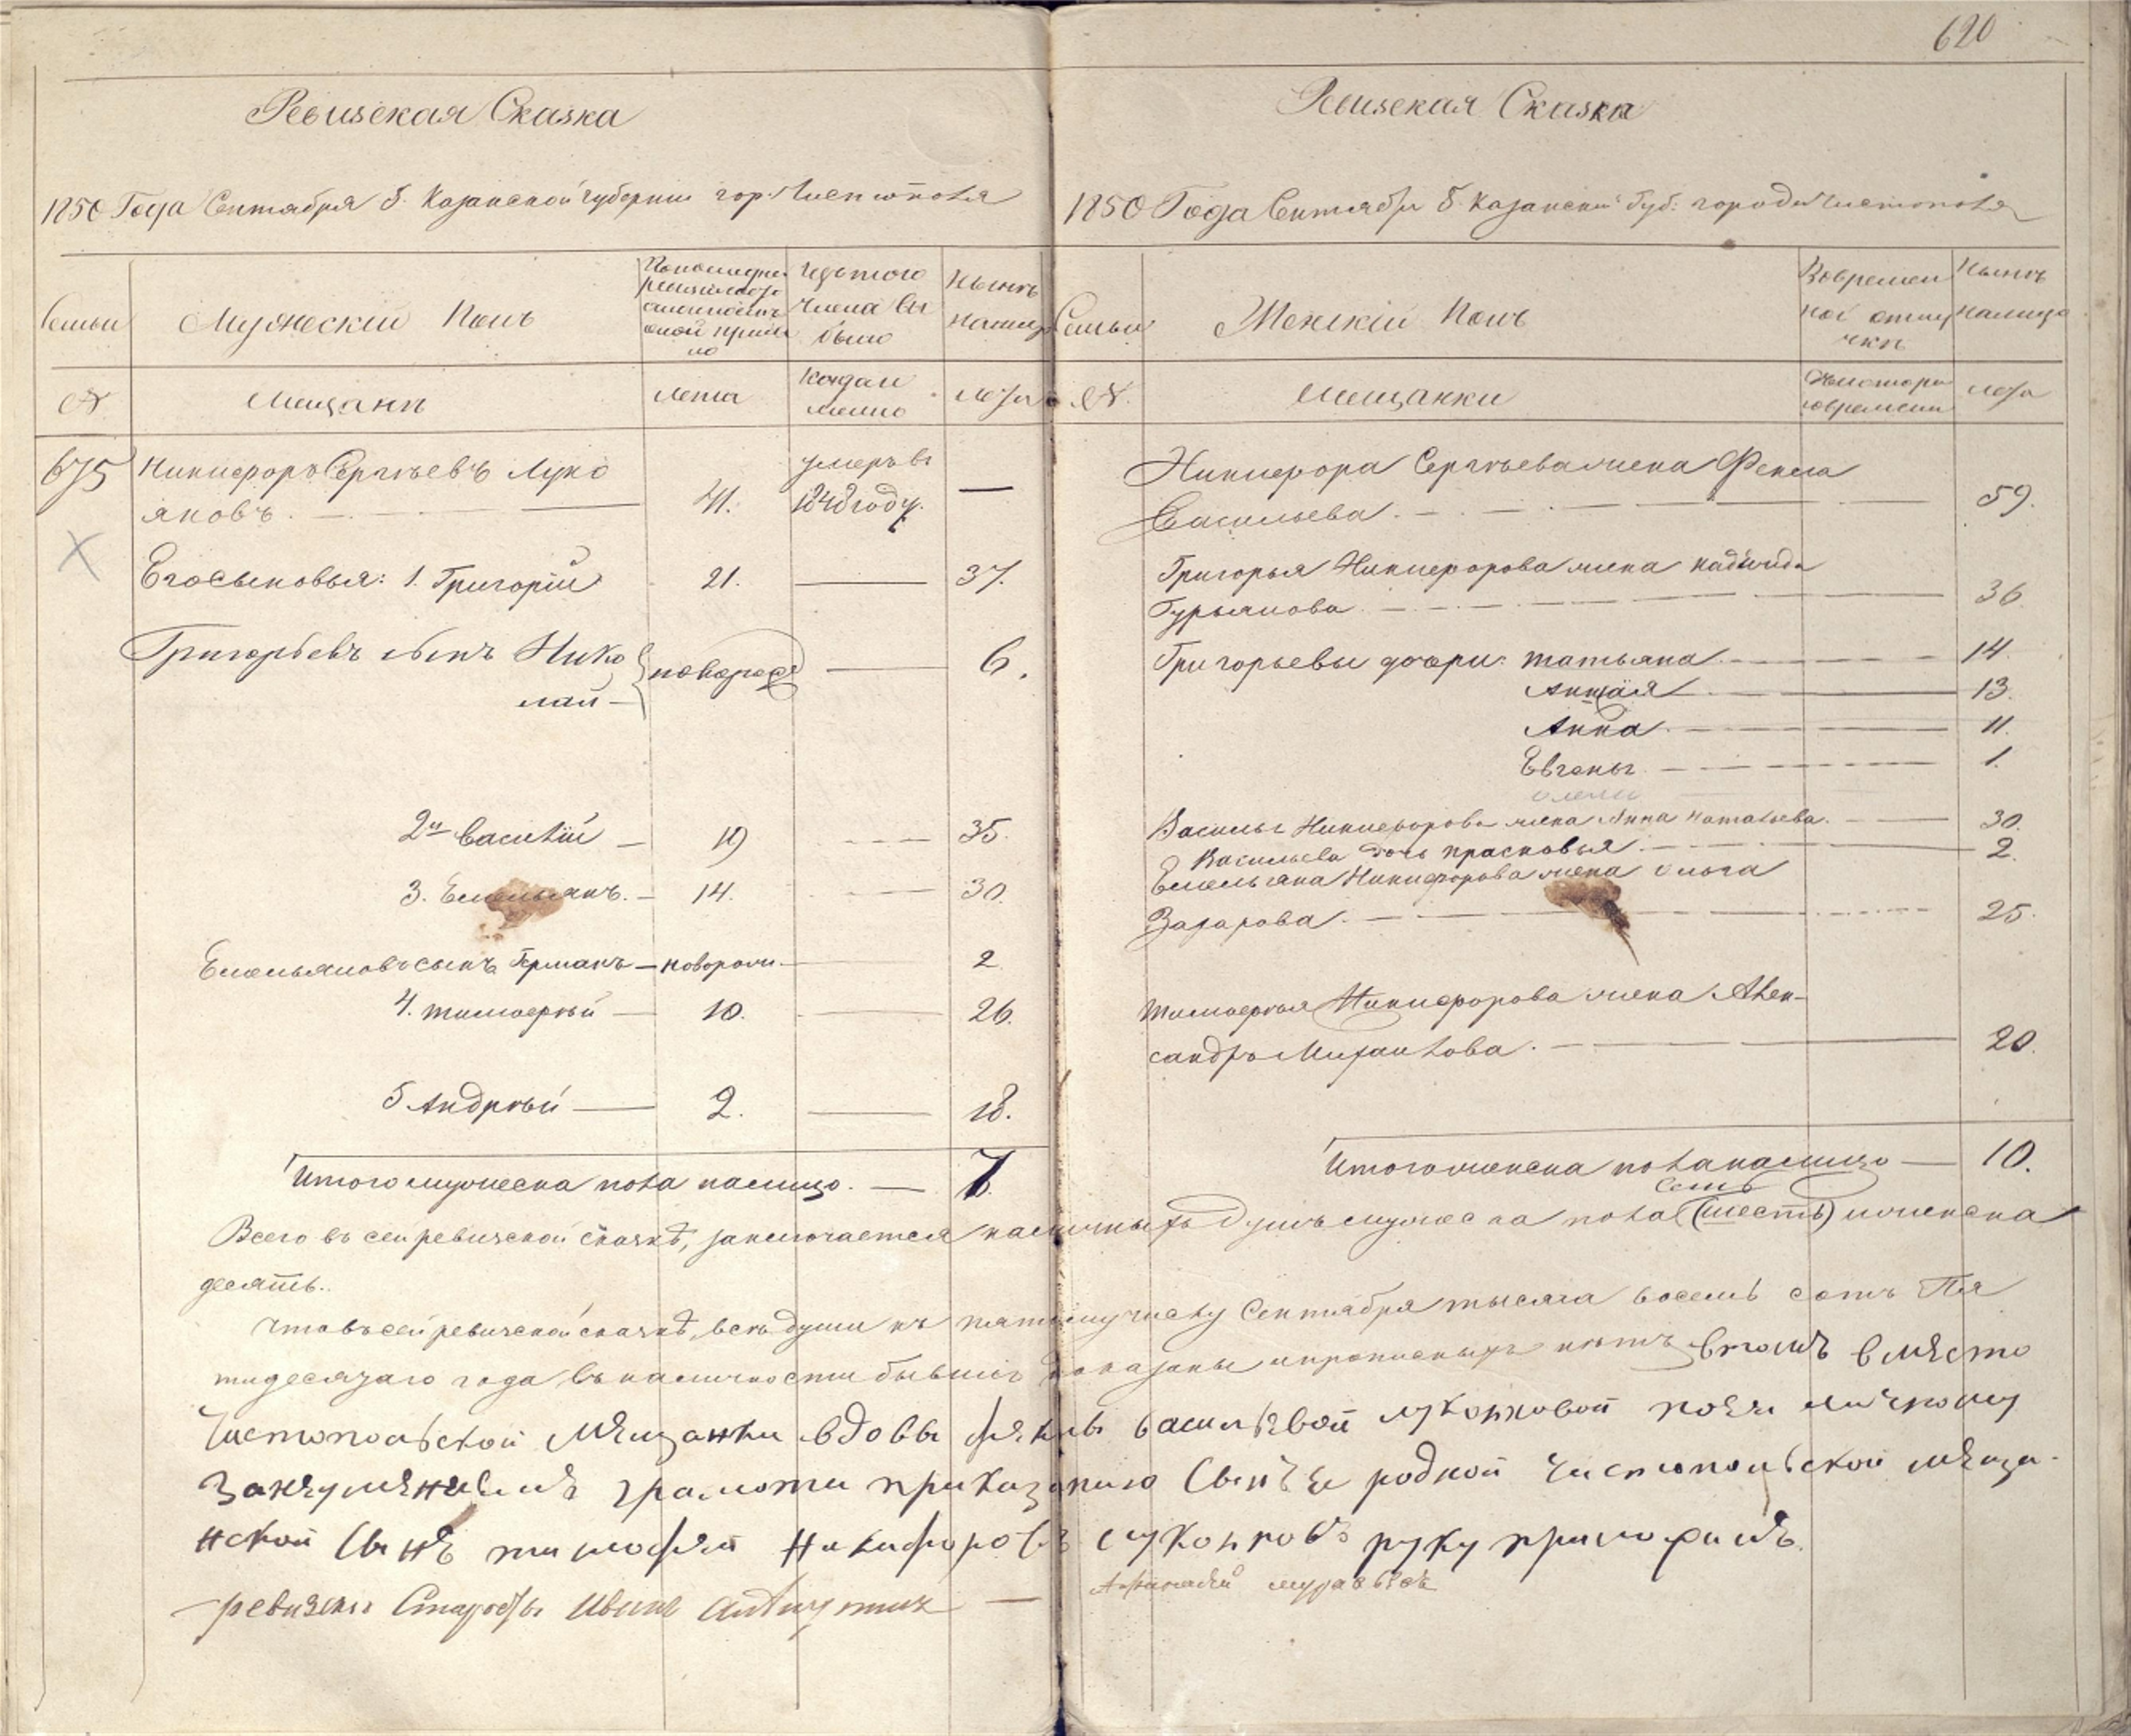 620
Ревизская Сказка
1850 Года Сентября 5. Казанской губернии гор. Чистополя
Семьи
Мужеский Полъ
По последней ревизии состояло и после оной прибыло
Изъ того числа выбыло
Ныне на лицо
№
Мещане
Лета
Когда именно
Лета
675 Никифоръ Сергѣевъ Луко
яновъ. — 41. умеръ въ 1848 году. —
Его сыновья: 1. Григорій 21. — 37.
Григорьевъ сынъ Нико
лай — новорож — 6.
2й Василій — 19 — 35.
3. Емельянъ. — 14. — 30.
Емельяновъ сынъ Германъ — новорож. — 2
4. Тимоѳей — 10. — 26.
5 Андрей — 2. — 18.
Итого мужеска пола налицо. — 7.
Ревизская Сказка
1850 Года Сентября 5. Казанской Губ. города Чистополя
Семьи
Женскій Полъ
Во временной отлучке
Ныне налицо
№.
Мещанки
С которого времени
Лета
Никифора Сергѣева жена Фекла
Васильева. — 59.
Григорья Никифорова жена Надежда
Гурьянова. — 36
Григорьевы дочери: Татьяна. — 14.
— 13.
Анна. — 11.
Евгенья. — 1.
Василья Никифорова жена Анна — 30.
Васильева дочь Прасковья. — 2.
Емельяна Никифорова жена Ольга
Захарова. — 25.
Тимоѳея Никифорова жена Алек-
сандра Михайлова. — 20.
Итого женска пола налицо — 10.
семь
Всего въ сей ревизской сказкѣ, заключается наличныхъ душъ мужеска пола (шесть) и женска
десять.
Что въ сей ревизской сказкѣ, всѣ души къ пятому числу Сентября тысяча восемь сотъ Пя
тидесятаго года въ наличности бывшія показаны и прописныхъ нѣтъ, въ томъ вместо
Чистопольской мещанки вдовы феклы васильевой луконовой по ея личному
за неуменіемъ грамоты приказанию сынъ ея родной чистопольской меща-
нской сынъ тимофей никифоровъ руку приложилъ.
ревизски Староста Иванъ —